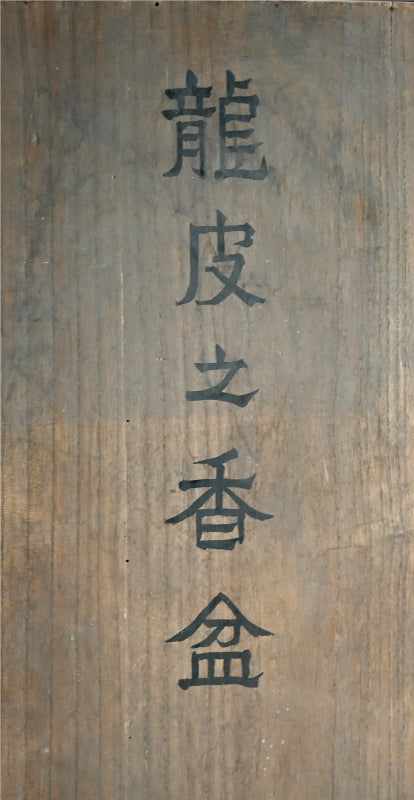 龍皮之香盆